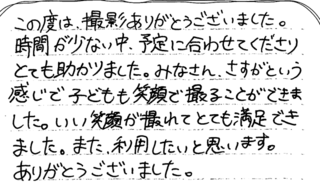 この度は、撮影ありがとうございました。
時間が少ない中、予定に合わせてくださり
とても助かりました。みなさん、さすがという
感じで子どもも笑顔で撮ることができま
した。いい笑顔が撮れてとても満足でき
ました。また、利用したいと思います。
ありがとうございました。